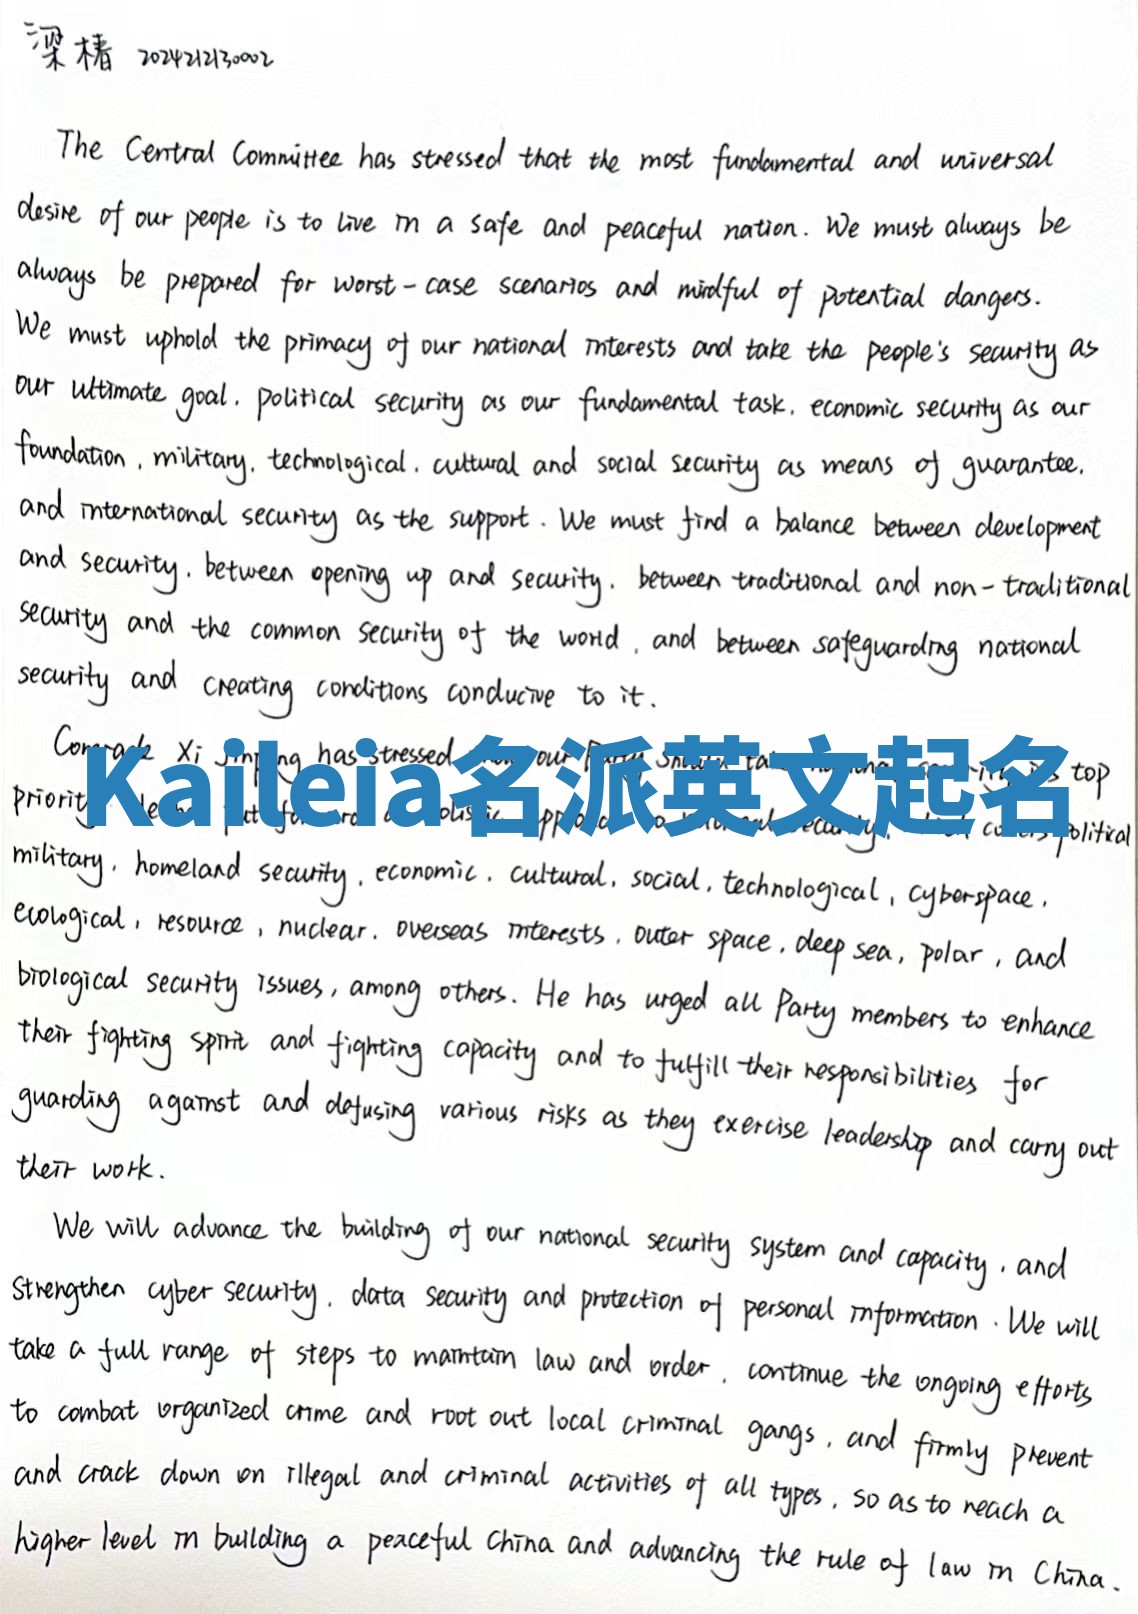 梁椿 2024212130002
The Central Committee has stressed that the most fundamental and universal
desire of our people is to live in a safe and peaceful nation. We must always be
always be prepared for worst-case scenarios and mindful of potential dangers.
We must uphold the primacy of our national interests and take the people's security as
our ultimate goal, political security as our fundamental task, economic security as our
foundation, military, technological, cultural and social security as means of guarantee,
and international security as the support. We must find a balance between development
and security, between opening up and security, between traditional and non-traditional
security and the common security of the world, and between safeguarding national
security and creating conditions conducive to it.
Xi Jinping has stressed our top
Kaileia名派英文起名
political
military, homeland security, economic, cultural, social, technological, cyberspace,
ecological, resource, nuclear, overseas interests, outer space, deep sea, polar, and
biological security issues, among others. He has urged all Party members to enhance
their fighting spirit and fighting capacity and to fulfill their responsibilities for
guarding against and defusing various risks as they exercise leadership and carry out
their work.
We will advance the building of our national security system and capacity, and
strengthen cyber security, data security and protection of personal information. We will
take a full range of steps to maintain law and order, continue the ongoing efforts
to combat organized crime and root out local criminal gangs, and firmly prevent
and crack down on illegal and criminal activities of all types, so as to reach a
higher level in building a peaceful China and advancing the rule of law in China.